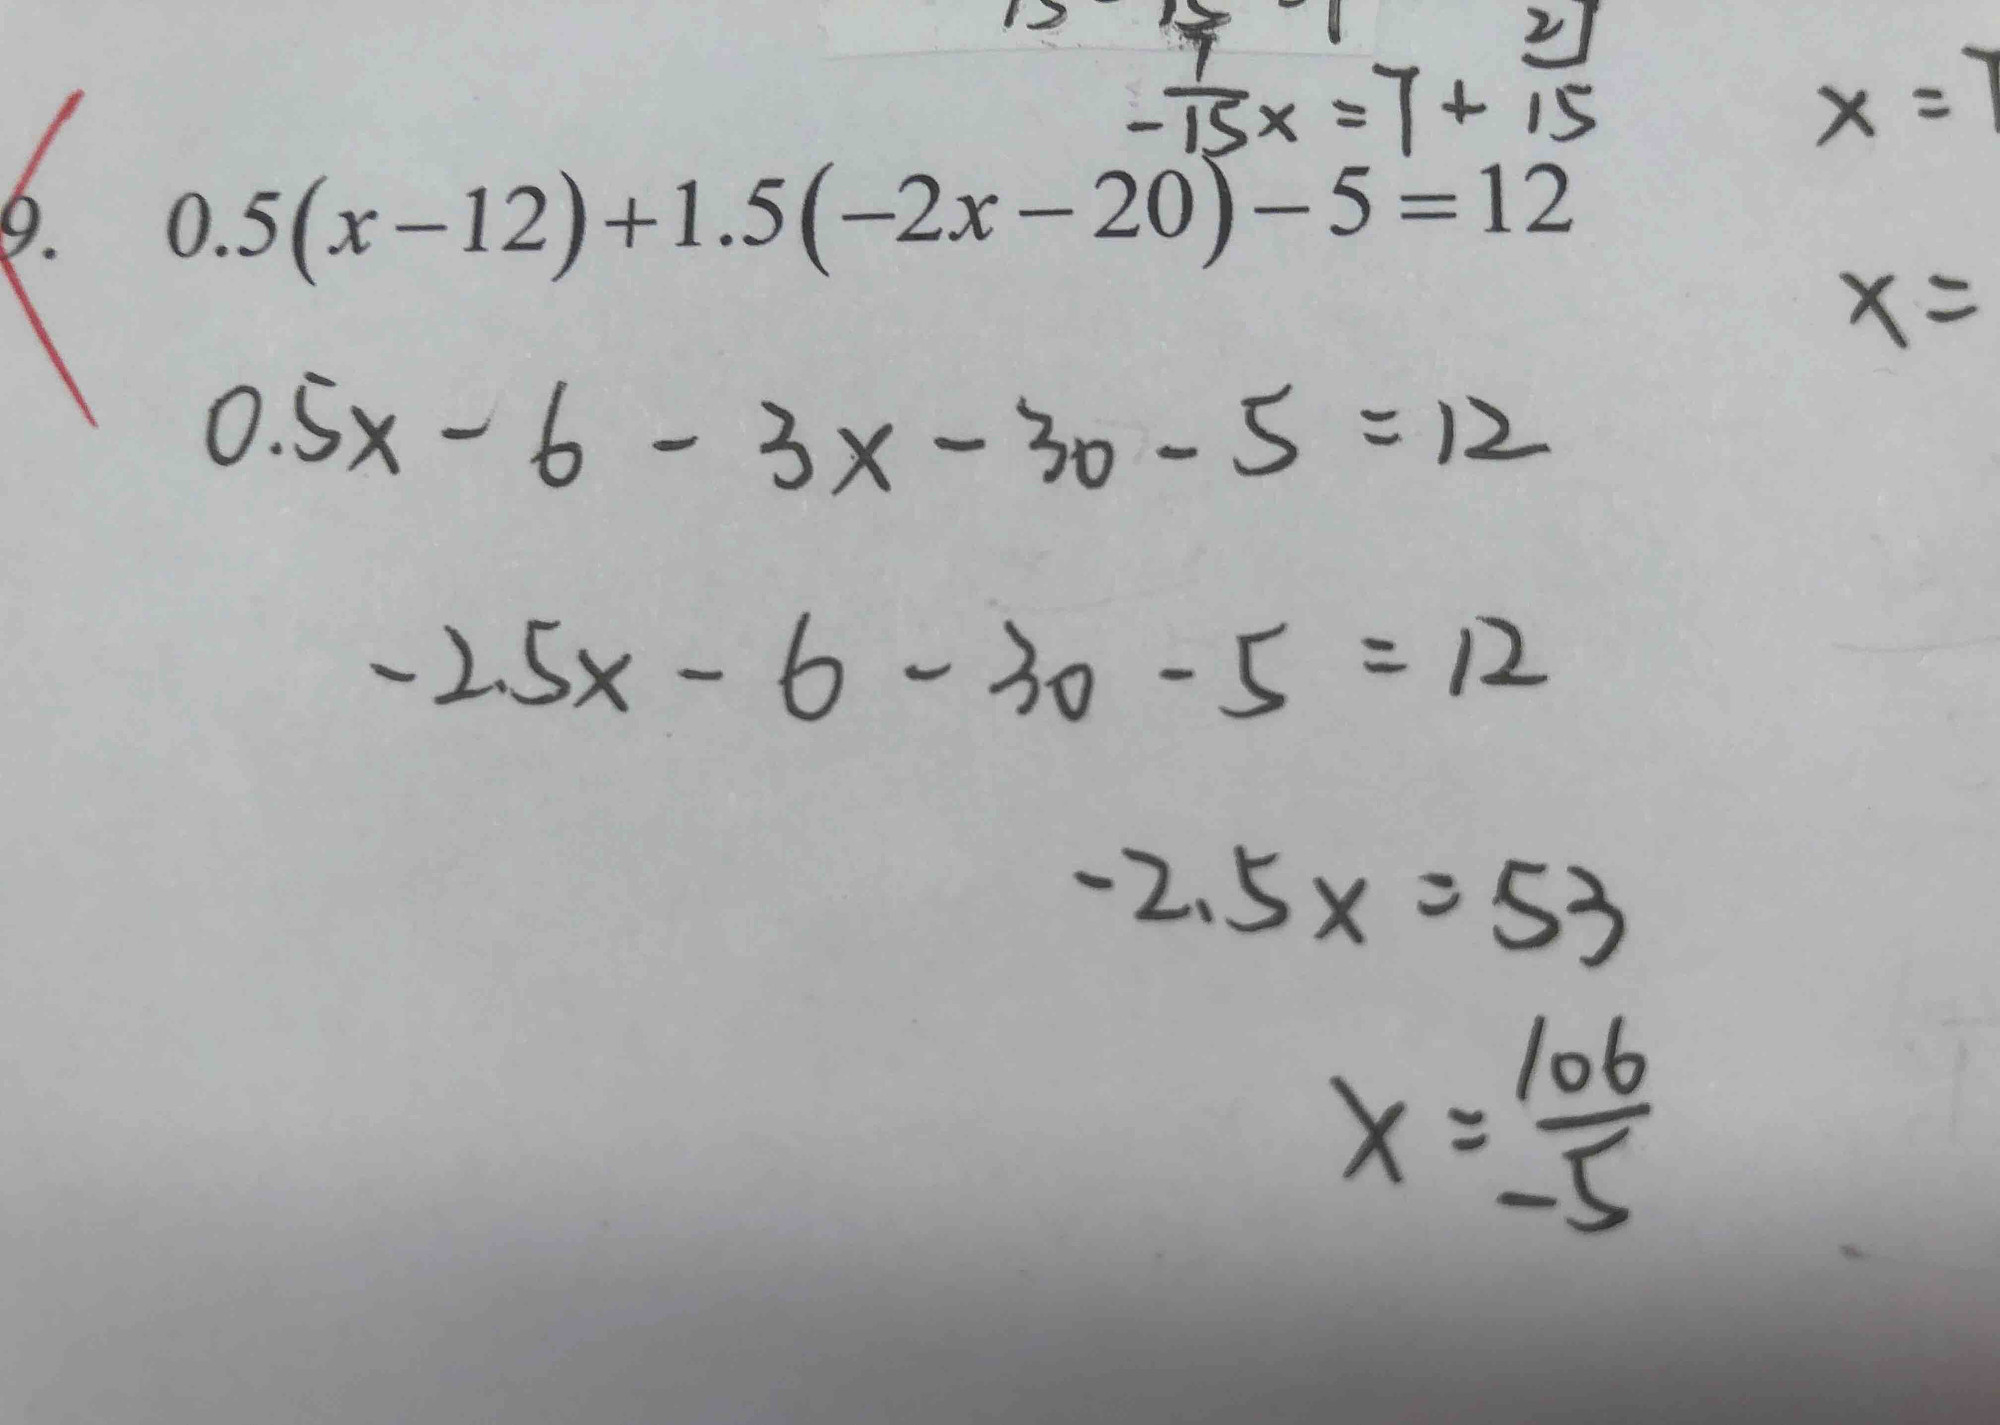 -7/15x = 7 + 21/15
x = 7
9. 0.5(x-12)+1.5(-2x-20)-5=12
x =
0.5x - 6 - 3x - 30 - 5 = 12
-2.5x - 6 - 30 - 5 = 12
-2.5x = 53
x = 106/-5